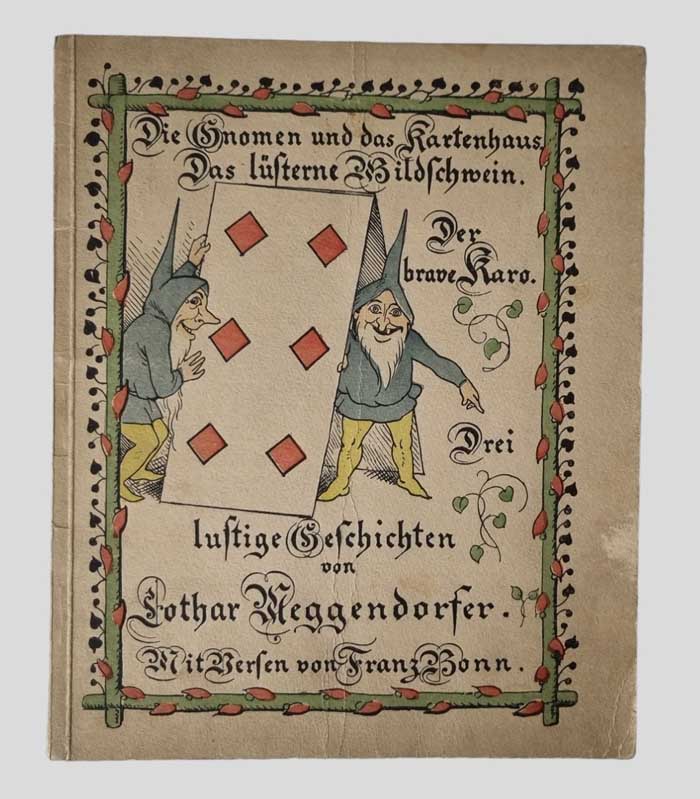 Die Gnomen und das Kartenhaus.
Das lüsterne Wildschwein.
Der
brave Karo.
Drei
lustige Geschichten
von
Lothar Meggendorfer.
Mit Versen von Franz Bonn.